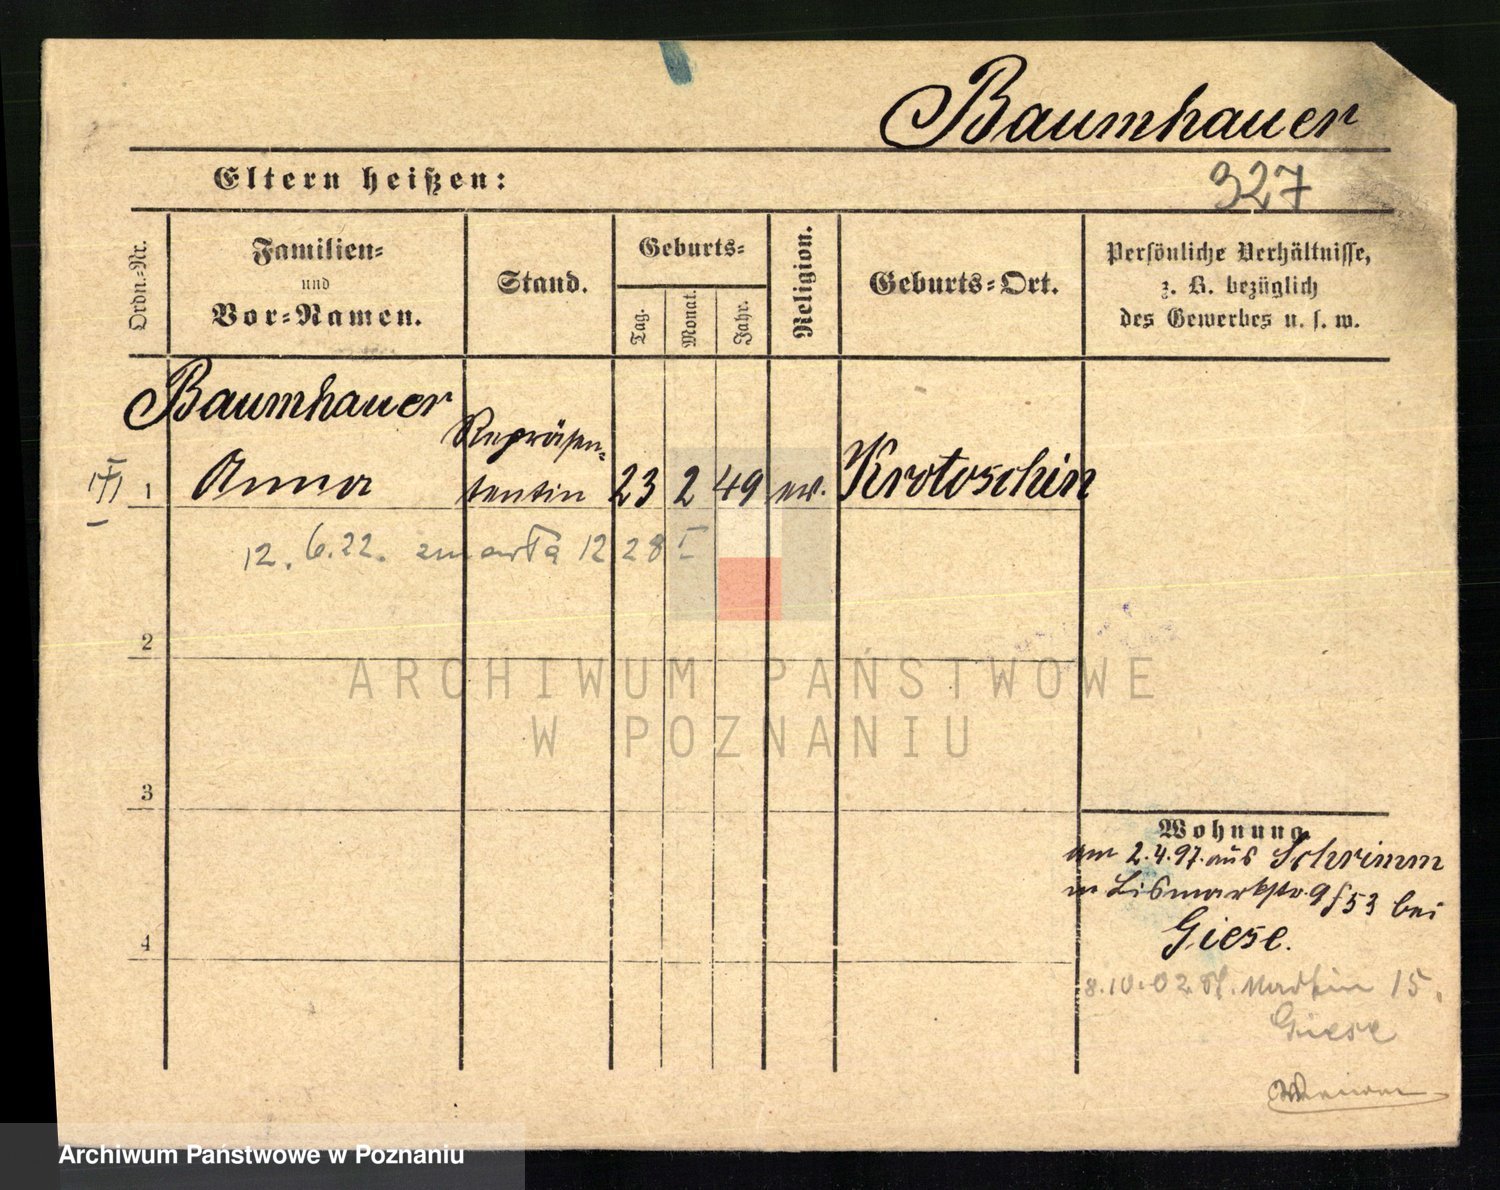 Baumhauer
Eltern heißen:
327
Ordn.-Nr.
Familien-
und
Vor-Namen.
Stand.
Geburts-
Tag.
Monat.
Jahr.
Religion.
Geburts-Ort.
Persönliche Verhältnisse,
z. B. bezüglich
des Gewerbes u. s. w.
Baumhauer
1 Anna Repräsen-
tantin 23 2 49 ev. Krotoschin
12. 6. 22. zmarła 12 28 I
2
ARCHIWUM PAŃSTWOWE
W POZNANIU
3
Wohnung
am 2.4.97. aus Schrimm
in Bismarckstr. 9 bei
Giese.
4
8.10.02 St. Martin 15.
Giese
Archiwum Państwowe w Poznaniu